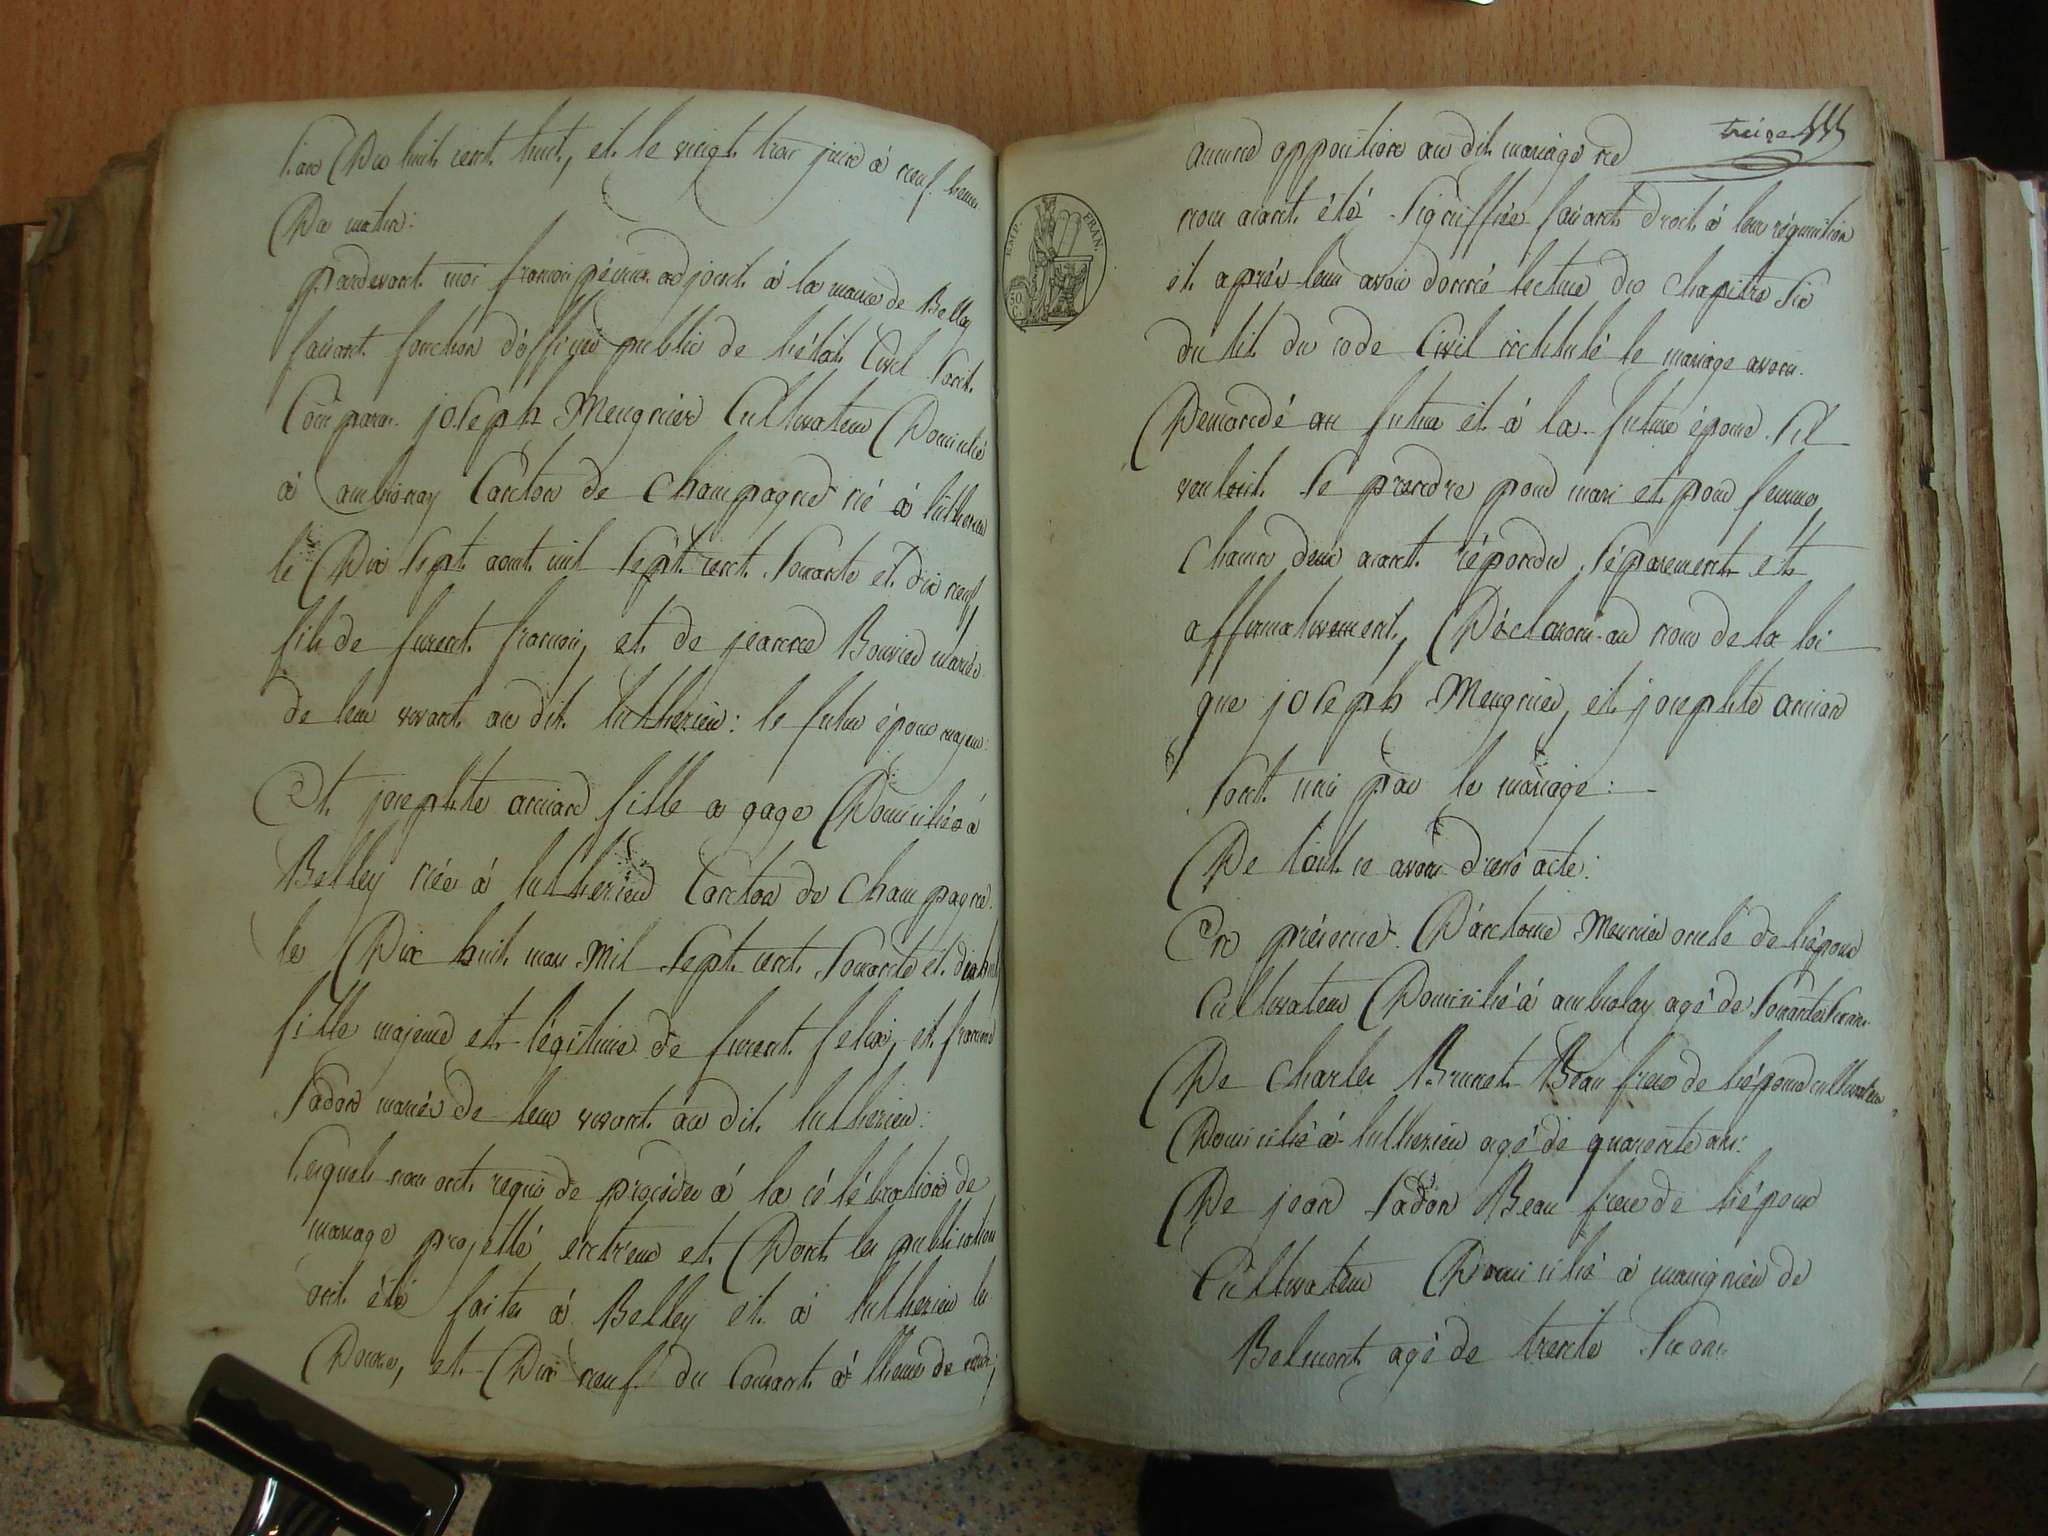 L'an Dix huit cent huit, et le vingt trois juin à neuf heures
Du matin:
pardevant moi françois adjoint à la mairie de Belley
faisant fonction d'officier public de l'état Civil Sont
Comparus joseph Meugnier Cultivateur Domicilié
à ambionay Canton de Champagne né à luthezieu
le Dix Sept aout mil Sept cent Soixante et dix neuf
fils de furent françois, et de jeanne Bouvier mariés
de leur vivant au dit luthezieu: le futur époux majeur:
Et josephte aniand fille a gage Domiciliée à
Belley née à luthezieu Canton de Champagne
le Dix huit mars mil Sept cent Soixante et dix huit
fille majeure et légitime de furent felix, et
Sadon mariés de leur vivant au dit luthezieu:
Lesquels nous ont requis de procéder à la célébration de
mariage projetté entreux et Dont les publications
ont été faites à Belley et à luthezieu les
Douze, et Dix neuf du Courant à lheure de midi;
treize
aucune opposition au dit mariage ne
nous aiant été Signiffiée faisant droit à leur réquisition
et après leur avoir donné lecture du Chapitre Six
du tit du code Civil intitulé le mariage avons
Demandé au futur et à la future épouse S'il
veulent Se prendre pour mari et pour femme,
Chacun deux aiant répondu Séparement et
affirmativement, Déclarons au nom de la loi
que joseph Meugnier, et josephte aniand
Sont unis par le mariage:
De tout ce avons dressé acte:
En présence D'antoine Meunier oncle de l'époux
Cultivateur Domicilié à ambiolay agé de
De Charles Brunet Beau frere de l'époux cultivateur
Domicilié à luthezieu agé de quarente ans:
De jean Sadon Beau frere de l'époux
Cultivateur Domicilié à de
Belmont agé de trente Six ans
EMP. FRAN.
50 C.